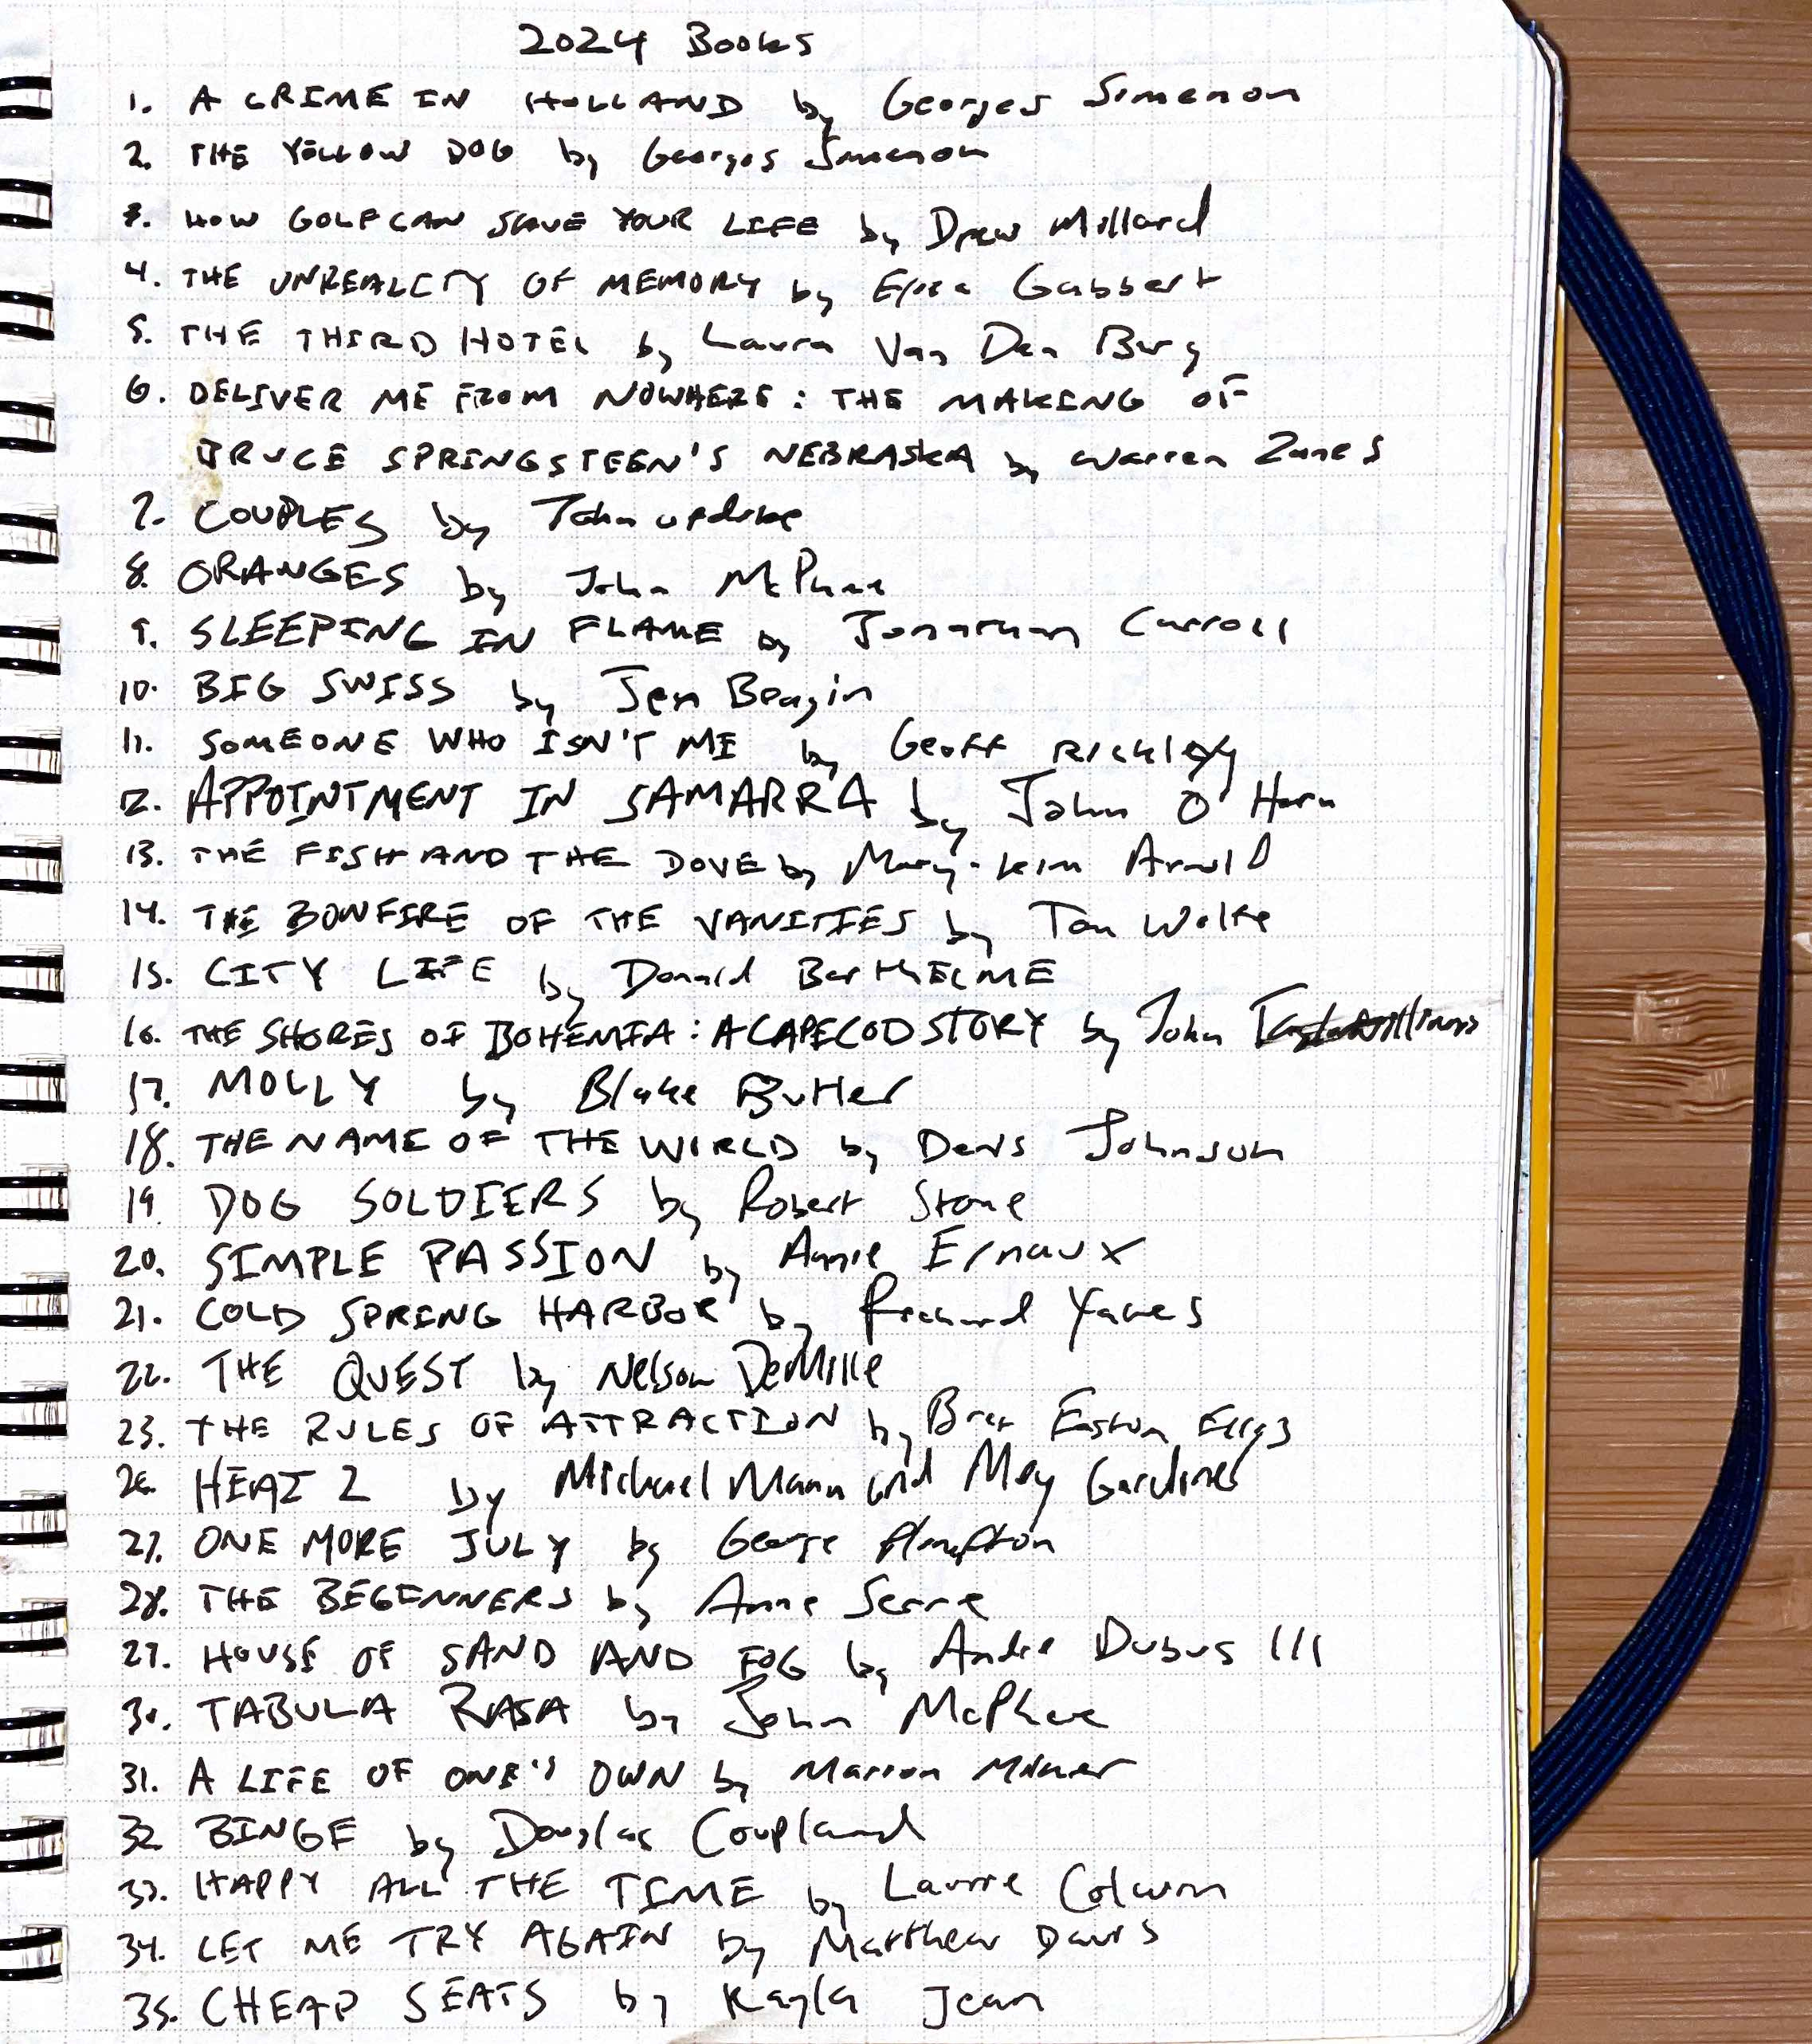 2024 Books
1. A CRIME IN HOLLAND by Georges Simenon
2. THE YELLOW DOG by Georges Simenon
3. HOW GOLF CAN SAVE YOUR LIFE by Drew Millard
4. THE UNREALITY OF MEMORY by Elisa Gabbert
5. THE THIRD HOTEL by Laura Van Den Berg
6. DELIVER ME FROM NOWHERE: THE MAKING OF
BRUCE SPRINGSTEEN'S NEBRASKA by Warren Zanes
7. COUPLES by John Updike
8. ORANGES by John McPhee
9. SLEEPING IN FLAME by Jonathan Carroll
10. BIG SWISS by Jen Beagin
11. SOMEONE WHO ISN'T ME by Geoff Rickly
12. APPOINTMENT IN SAMARRA by John O'Hara
13. THE FISH AND THE DOVE by Mary-Kim Arnold
14. THE BONFIRE OF THE VANITIES by Tom Wolfe
15. CITY LIFE by Donald BarthELME
16. THE SHORES OF BOHEMIA: A CAPE COD STORY by John Taylor Williams
17. MOLLY by Blake Butler
18. THE NAME OF THE WORLD by Denis Johnson
19. DOG SOLDIERS by Robert Stone
20. SIMPLE PASSION by Annie Ernaux
21. COLD SPRING HARBOR by Richard Yates
22. THE QUEST by Nelson DeMille
23. THE RULES OF ATTRACTION by Bret Easton Ellis
26. HEAT 2 by Michael Mann and Meg Gardiner
27. ONE MORE JULY by George Plimpton
28. THE BEGINNERS by Anne Serre
29. HOUSE OF SAND AND FOG by Andre Dubus III
30. TABULA RASA by John McPhee
31. A LIFE OF ONE'S OWN by Marion Milner
32 BINGE by Douglas Coupland
33. HAPPY ALL THE TIME by Laurie Colwin
34. LET ME TRY AGAIN by Matthew Davis
35. CHEAP SEATS by Kayla Jean